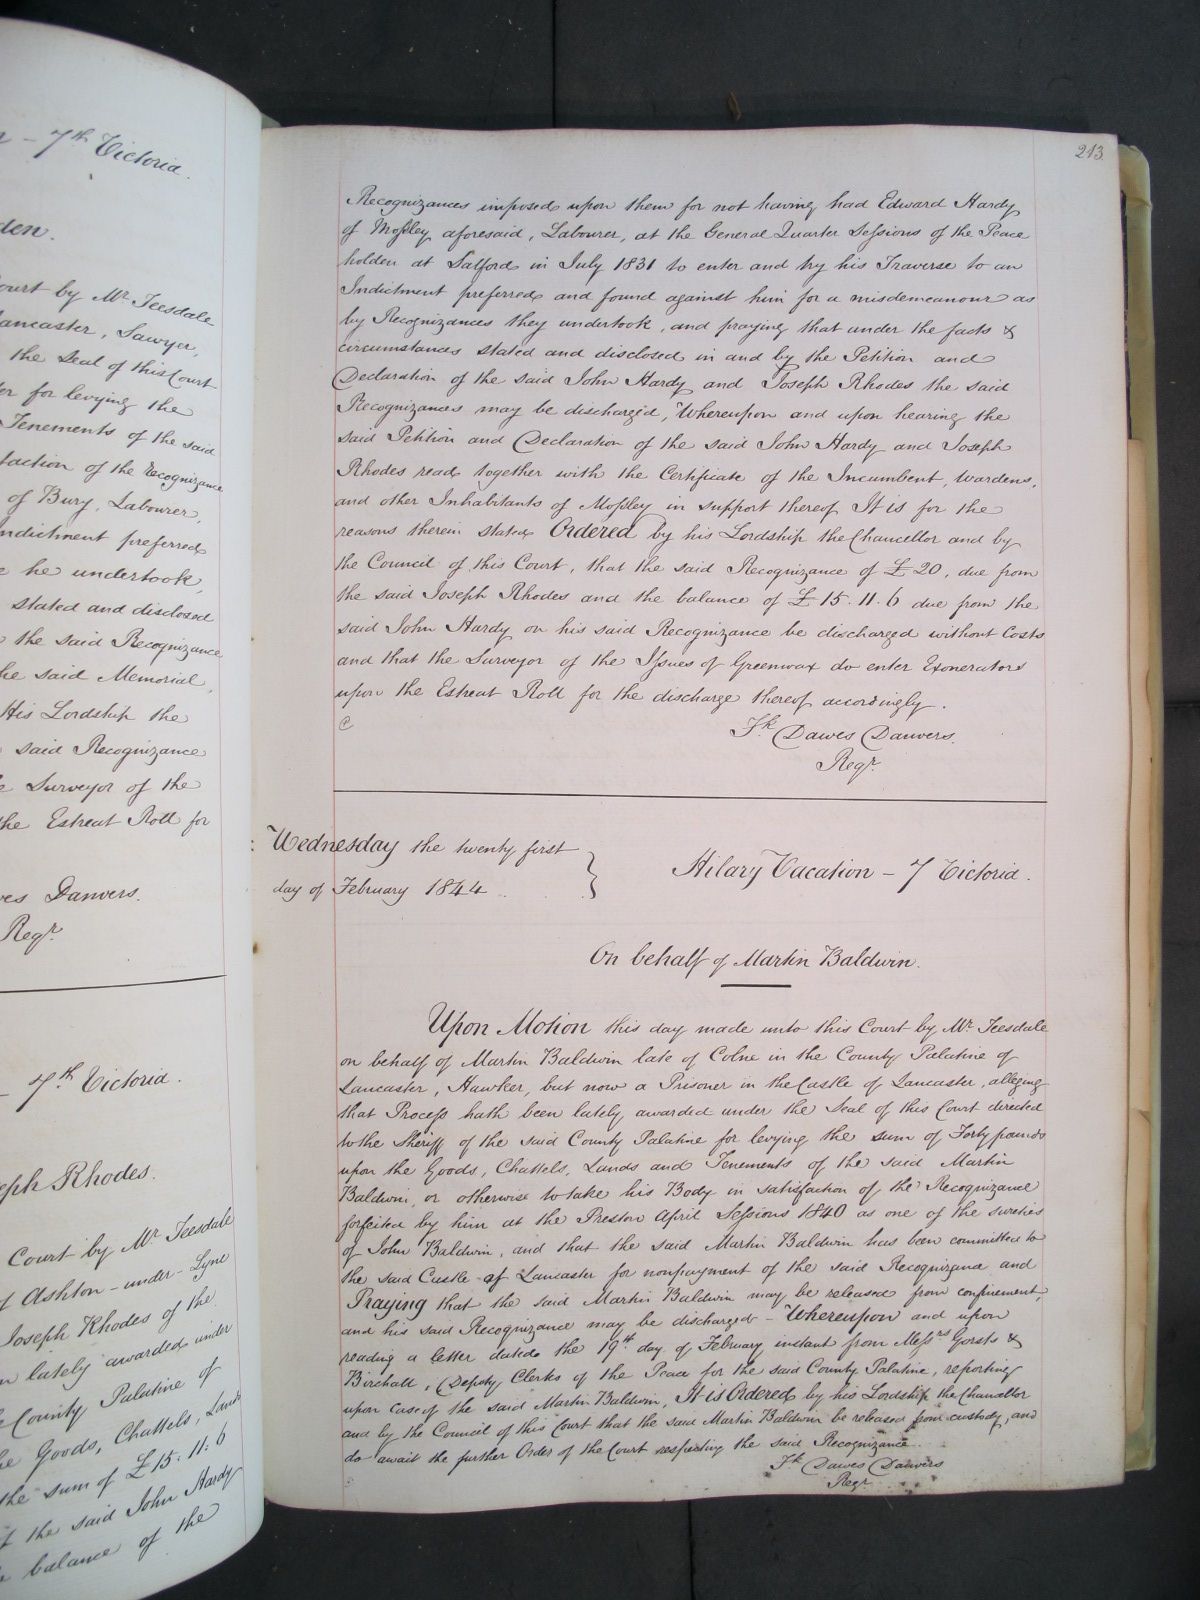 7th Victoria.
den.
ourt by Mr. Teesdale
ancaster, Sawyer,
the Seal of this Court
for levying the
Tenements of the said
faction of the Recognizance
of Bury, Labourer,
ndictment preferred
he undertook,
stated and disclosed
the said Recognizance
he said Memorial,
His Lordship the
said Recognizance
Surveyor of the
the Estreat Roll for
es Danvers.
Regr.
7th. Victoria.
eph Rhodes.
Court by Mr Teesdale
Ashton-under-Lyne
Joseph Rhodes of the
lately awarded under
County Palatine of
Goods, Chattels, Lands
the sum of £15:11:6
the said John Hardy
balance of the
213.
Recognizances imposed upon them for not having had Edward Hardy
of Mossley aforesaid, Labourer, at the General Quarter Sessions of the Peace
holden at Salford in July 1831 to enter and try his Traverse to an
Indictment preferred and found against him for a misdemeanour as
by Recognizances they undertook, and praying that under the facts &
circumstances stated and disclosed in and by the Petition and
Declaration of the said John Hardy and Joseph Rhodes the said
Recognizances may be discharged, Whereupon and upon hearing the
said Petition and Declaration of the said John Hardy and Joseph
Rhodes read together with the Certificate of the Incumbent, Wardens,
and other Inhabitants of Mossley in support thereof It is for the
reasons therein stated Ordered by his Lordship the Chancellor and by
the Council of this Court, that the said Recognizance of £20, due from
the said Joseph Rhodes and the balance of £15.11.6 due from the
said John Hardy on his said Recognizance be discharged without Costs
and that the Surveyor of the Issues of Greenwax do enter Exonerators
upon the Estreat Roll for the discharge thereof accordingly.
Fk Dawes Danvers.
Regr.
Wednesday the twenty first
day of February 1844
Hilary Vacation – 7 Victoria.
On behalf of Martin Baldwin.
Upon Motion this day made unto this Court by Mr. Teesdale
on behalf of Martin Baldwin late of Colne in the County Palatine of
Lancaster, Hawker, but now a Prisoner in the Castle of Lancaster, alleging
that Process hath been lately awarded under the Seal of this Court directed
to the Sheriff of the said County Palatine for levying the sum of Forty pounds
upon the Goods, Chattels, Lands and Tenements of the said Martin
Baldwin, or otherwise to take his Body in satisfaction of the Recognizance
forfeited by him at the Preston April Sessions 1840 as one of the sureties
of John Baldwin, and that the said Martin Baldwin has been committed to
the said Castle of Lancaster for nonpayment of the said Recognizance and
Praying that the said Martin Baldwin may be released from confinement,
and his said Recognizance may be discharged – Whereupon and upon
reading a letter dated the 19th day of February instant from Messrs Gorsts &
Birchall, Deputy Clerks of the Peace for the said County Palatine, reporting
upon Case of the said Martin Baldwin, It is Ordered by his Lordship the Chancellor
and by the Council of this Court that the said Martin Baldwin be released from custody, and
do await the further Order of the Court respecting the said Recognizance
Fk Dawes Danvers
Regr